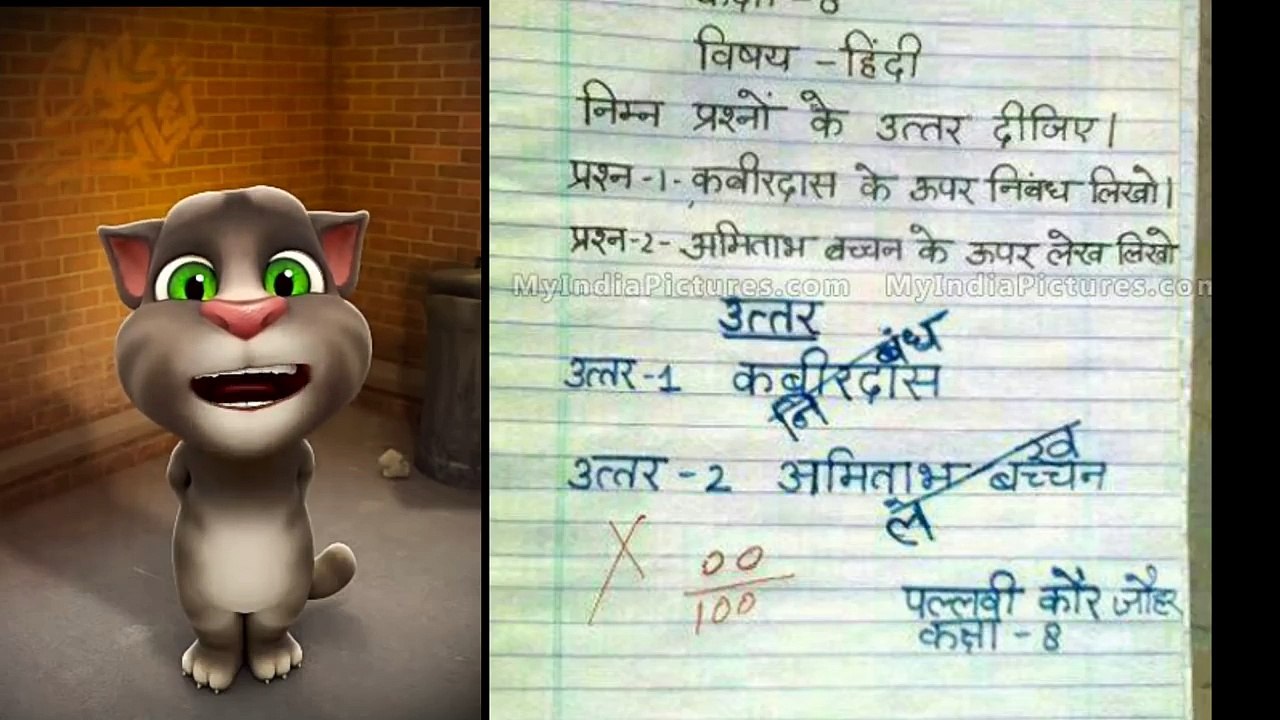 कक्षा - 8
विषय - हिंदी
निम्न प्रश्नों के उत्तर दीजिए।
प्रश्न-1- कबीरदास के ऊपर निबंध लिखो।
प्रश्न-2- अमिताभ बच्चन के ऊपर लेख लिखो
MyIndiaPictures.com MyIndiaPictures.com
उत्तर
बंध
उत्तर-1 कबीरदास
नि
ख
उत्तर-2 अमिताभ बच्चन
ले
00
100
पल्लवी कौर जौहर
कक्षा - 8